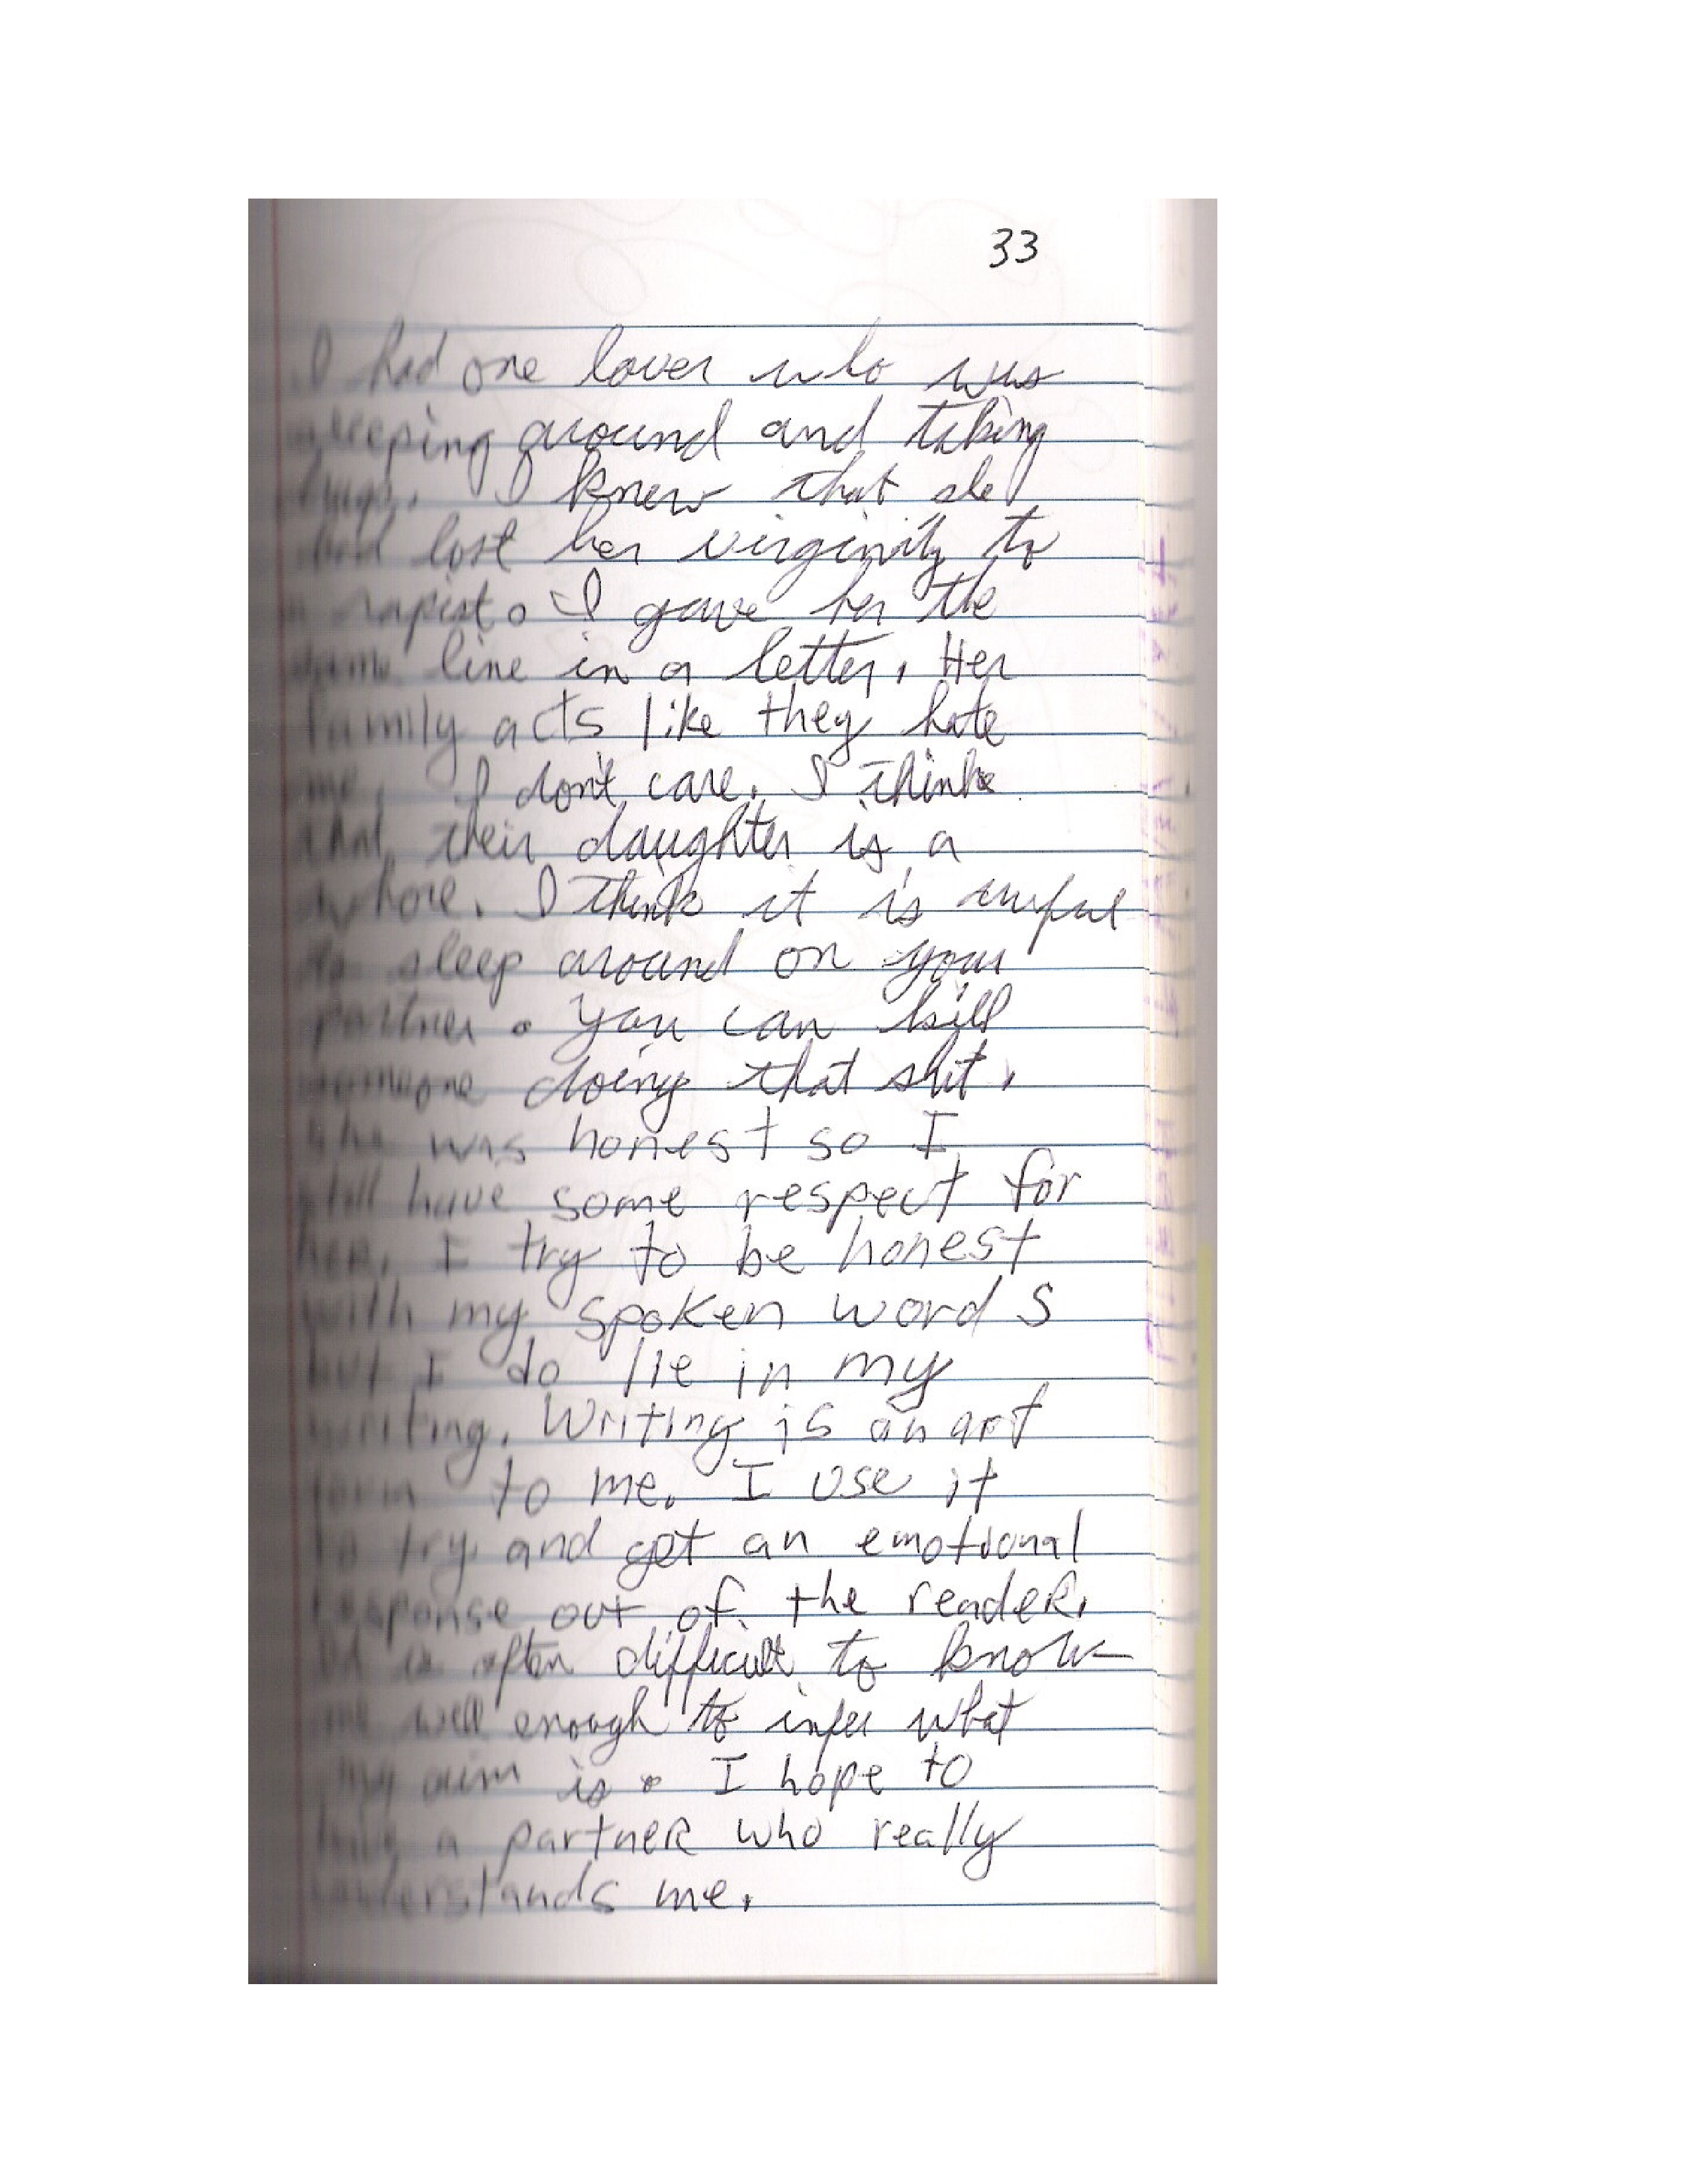 33
I had one lover who was
sleeping around and taking
drugs. I knew that she
had lost her virginity to
a rapist. I gave her the
same line in a letter. Her
family acts like they hate
me. I don't care. I think
that their daughter is a
whore. I think it is awful
to sleep around on your
partner. You can kill
someone doing that shit.
She was honest so I
still have some respect for
her. I try to be honest
with my spoken words
but I do lie in my
writing. Writing is an art
form to me. I use it
to try and get an emotional
response out of the reader.
It is often difficult to know
me well enough to infer what
my aim is. I hope to
have a partner who really
understands me.